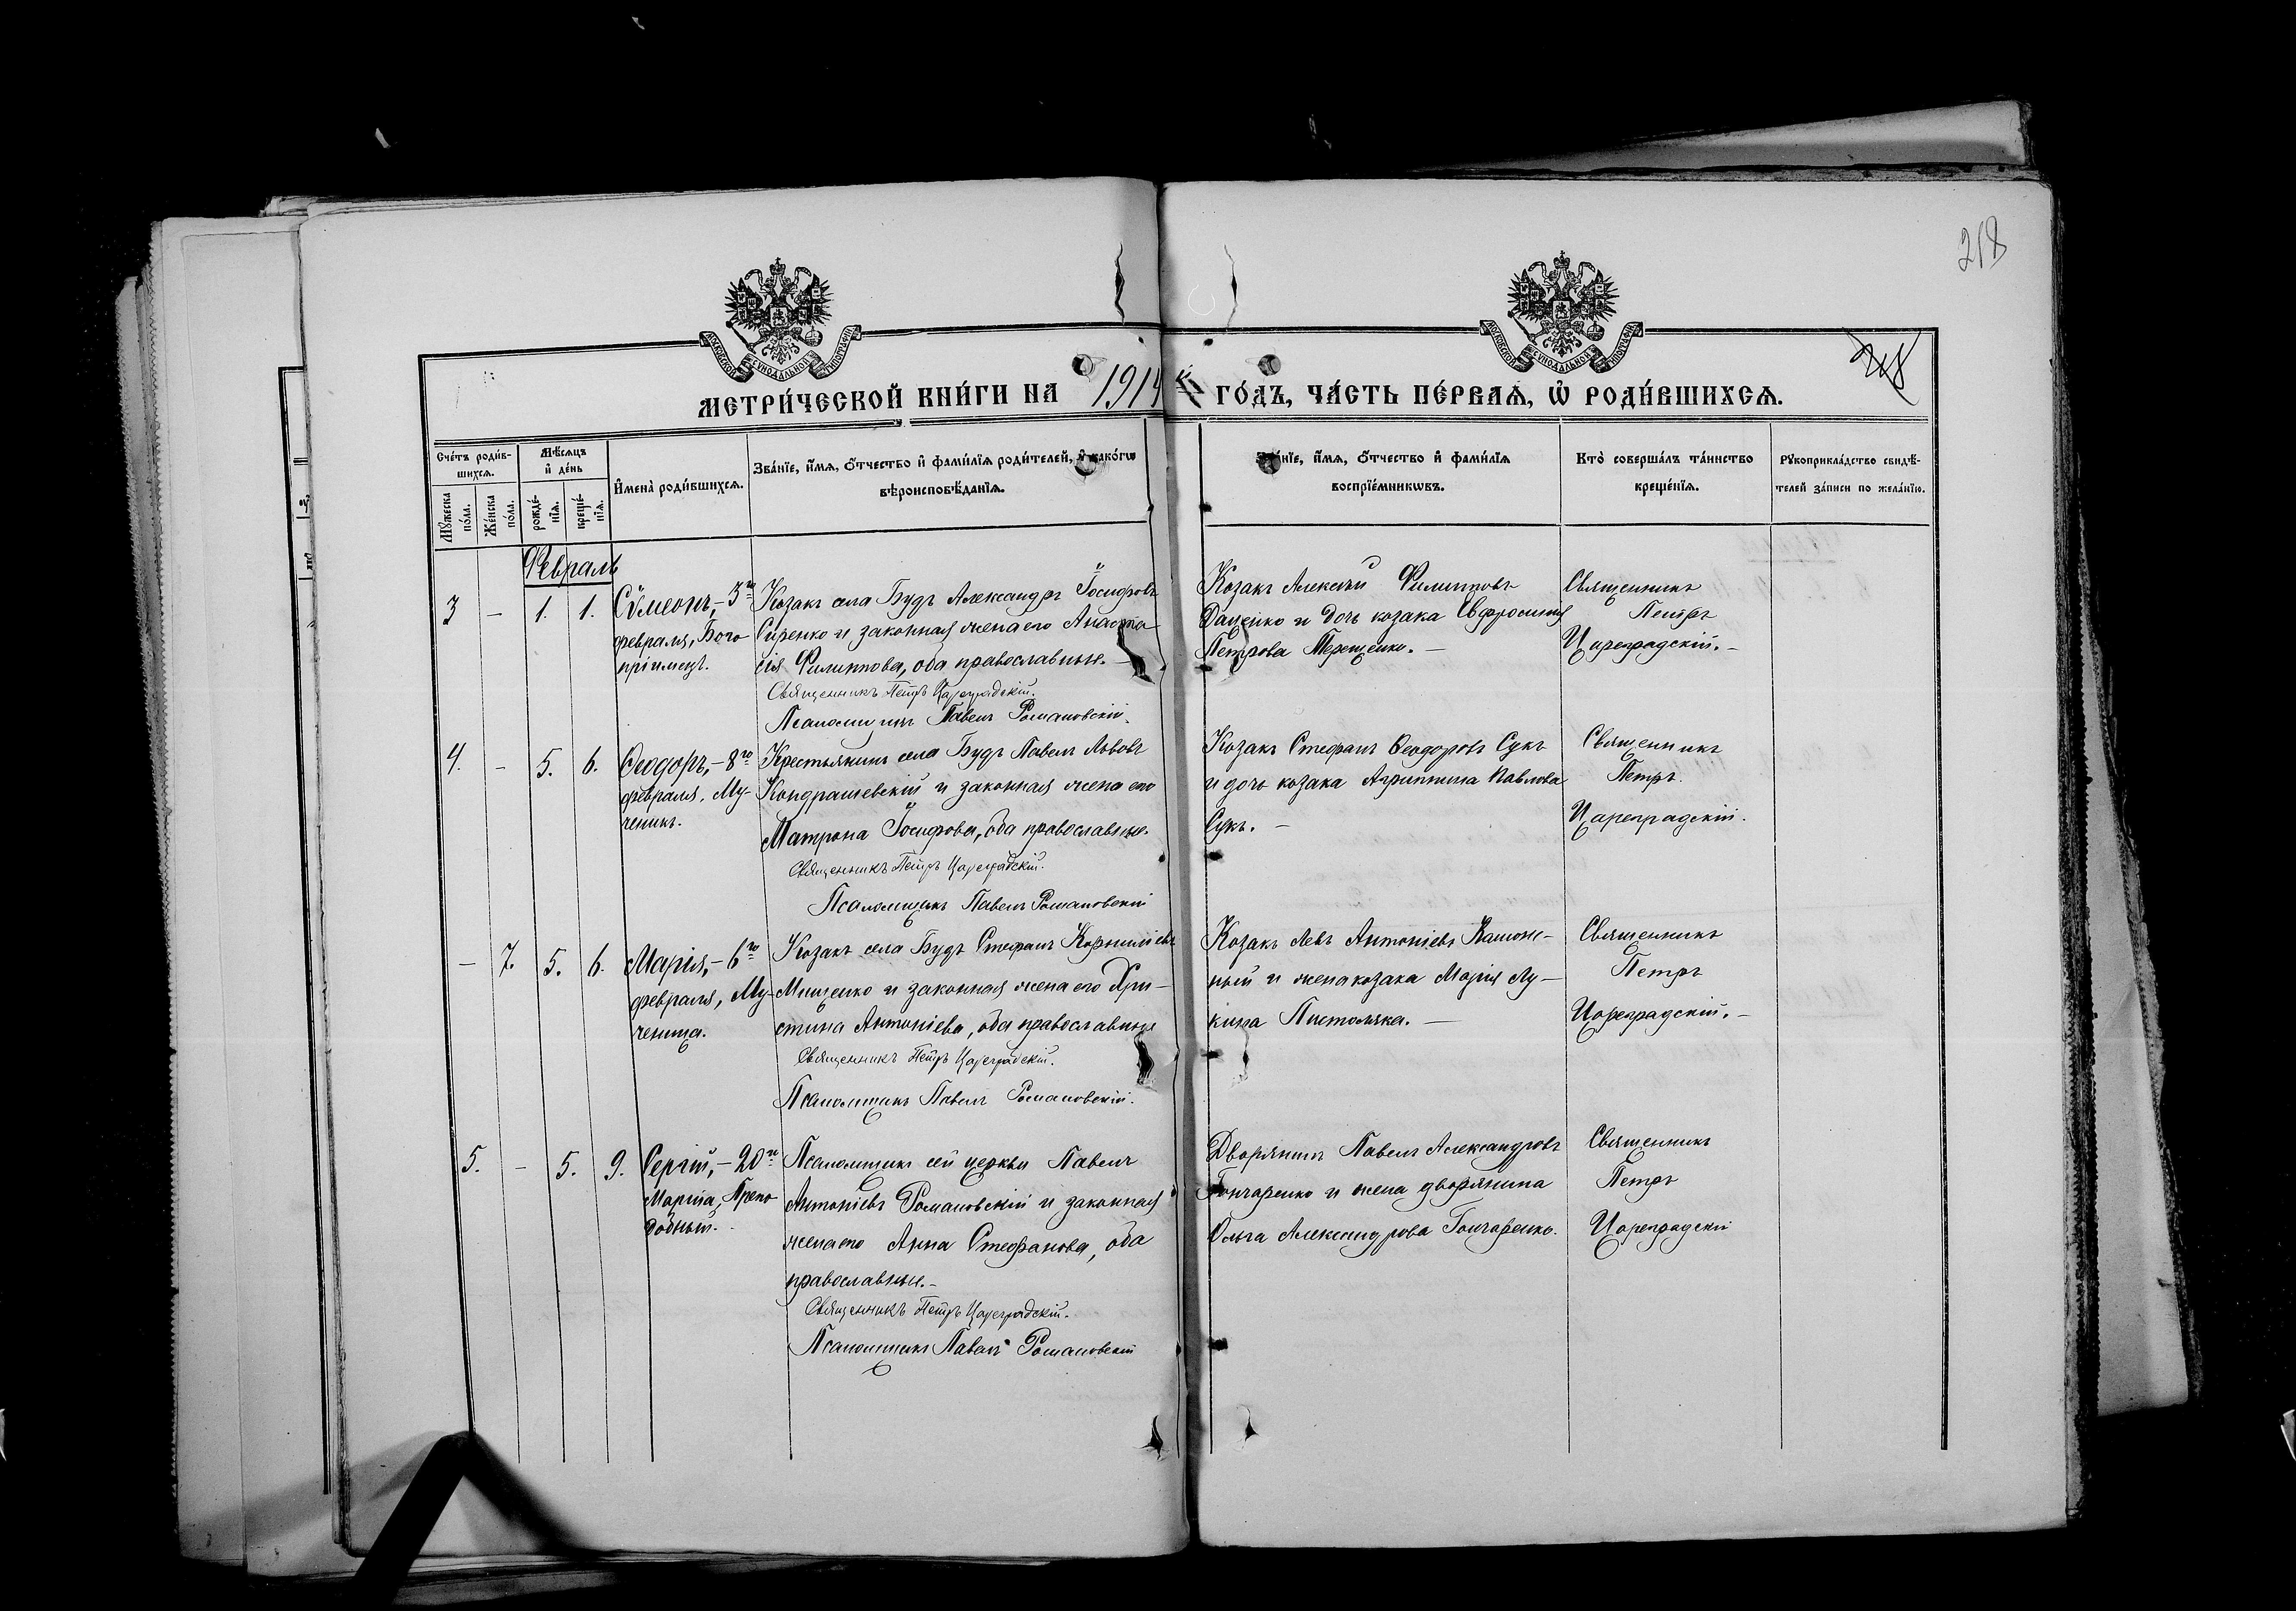 218
218
МОСКОВСКОЙ СѴНОДАЛЬНОЙ ТИПОГРАФІИ
МОСКОВСКОЙ СѴНОДАЛЬНОЙ ТИПОГРАФІИ
МЕТРИ́ЧЕСКОЙ КНИ́ГИ НА 1914 ГО́ДЪ, ЧА́СТЬ ПЕ́РВАѦ, Ѡ҆ РОДИ́ВШИХСѦ.
Сче́тъ роди́в-
шихсѧ.
Мꙋ́жеска по́ла.
Же́нска по́ла.
Мѣ́сѧцъ и҆ де́нь
рожде́-
нїѧ.
креще́-
нїѧ.
И҆мена̀ роди́вшихсѧ.
Зва́нїе, и҆́мѧ, ѻ҆́тчество и҆ фами́лїѧ роди́телей, и҆ како́гѡ
вѣроисповѣ́данїѧ.
Зва́нїе, и҆́мѧ, ѻ҆́тчество и҆ фами́лїѧ
воспрїе́мникѡвъ.
Кто̀ соверша́лъ та́инство
креще́нїѧ.
Рꙋкоприкла́дство свидѣ́-
телей за́писи по жела́нїю.
Февраль
3 – 1. 1. Сѵмеонъ,– 3го
февраля, Бого
пріимецъ.
Козакъ села Будъ Александръ Іосифовъ
Сиренко и законная жена его Анаста-
сія Филиппова, оба православные. –
Священникъ Петръ Цареградскій.
Псаломщикъ Павелъ Романовскій.
Козакъ Алексѣй Филипповъ
Даценко и дочь козака Евфросинія
Петрова Терещенко. –
Священникъ
Петръ
Цареградскій. –
4. – 5. 6. Ѳеодоръ,– 8го
февраля, Му-
ченикъ.
Крестьянинъ села Будъ Павелъ Львовъ
Кондрашевскій и законная жена его
Матрона Іосифова, оба православные.
Священникъ Петръ Цареградскій.
Псаломщикъ Павелъ Романовскій
Козакъ Стефанъ Ѳеодоровъ Сукъ
и дочь козака Агриппина Павлова
Сукъ. –
Священникъ
Петръ
Цареградскій.
– 7. 5. 6. Марія,– 6го
февраля, Му-
ченица.
Козакъ села Будъ Стефанъ Корниліевъ
Мищенко и законная жена его Хри-
стина Антоніева, оба православные
Священникъ Петръ Цареградскій.
Псаломщикъ Павелъ Романовскій.
Козакъ Левъ Антоніевъ
ный и жена козака Марія Лу-
кина –
Священникъ
Петръ
Цареградскій. –
5. – 5. 9. Сергій,– 20го
Марта, Препо
добный.
Псаломщикъ сей церкви Павелъ
Антоніевъ Романовскій и законная
жена его Анна Стефанова, оба
православные. –
Священникъ Петръ Цареградскій.
Псаломщикъ Павелъ Романовскій
Дворянинъ Павелъ Александровъ
Гончаренко и жена дворянина
Ольга Александрова Гончаренко.
Священникъ
Петръ
Цареградскій